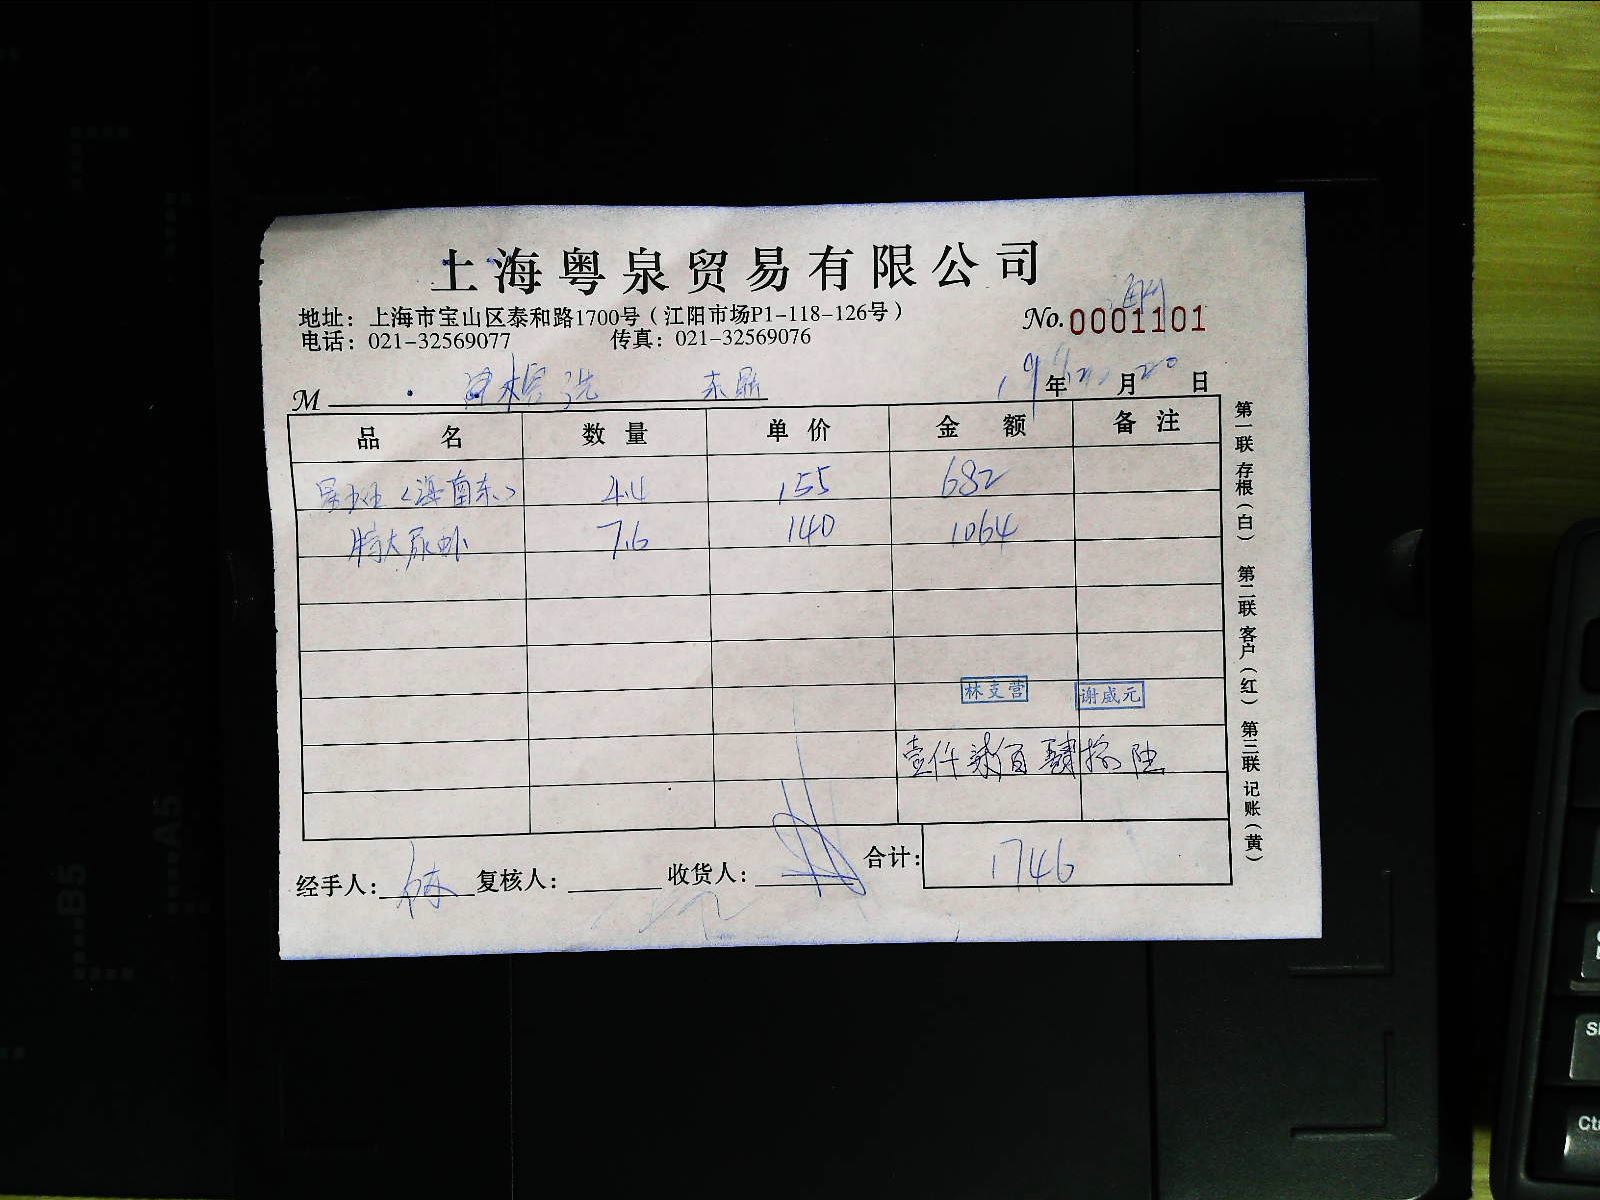 上海粤泉贸易有限公司
地址：上海市宝山区泰和路1700号（江阳市场P1-118-126号）
No.0001101
电话：021-32569077 传真：021-32569076
M
年 月 20 日
品 名 数 量 单 价 金 额 备 注
（海南东） 4.4 155 682
特大尿虾 7.6 140 1064
林支营 谢盛元
壹仟柒佰肆拾陆
经手人： 复核人： 收货人： 合计： 1746
第一联 存根（白） 第二联 客户（红） 第三联 记账（黄）
B5
A5
Ctr